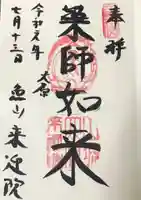 奉拝
大原
薬師如来
令和元年
七月十三日
魚山来迎院